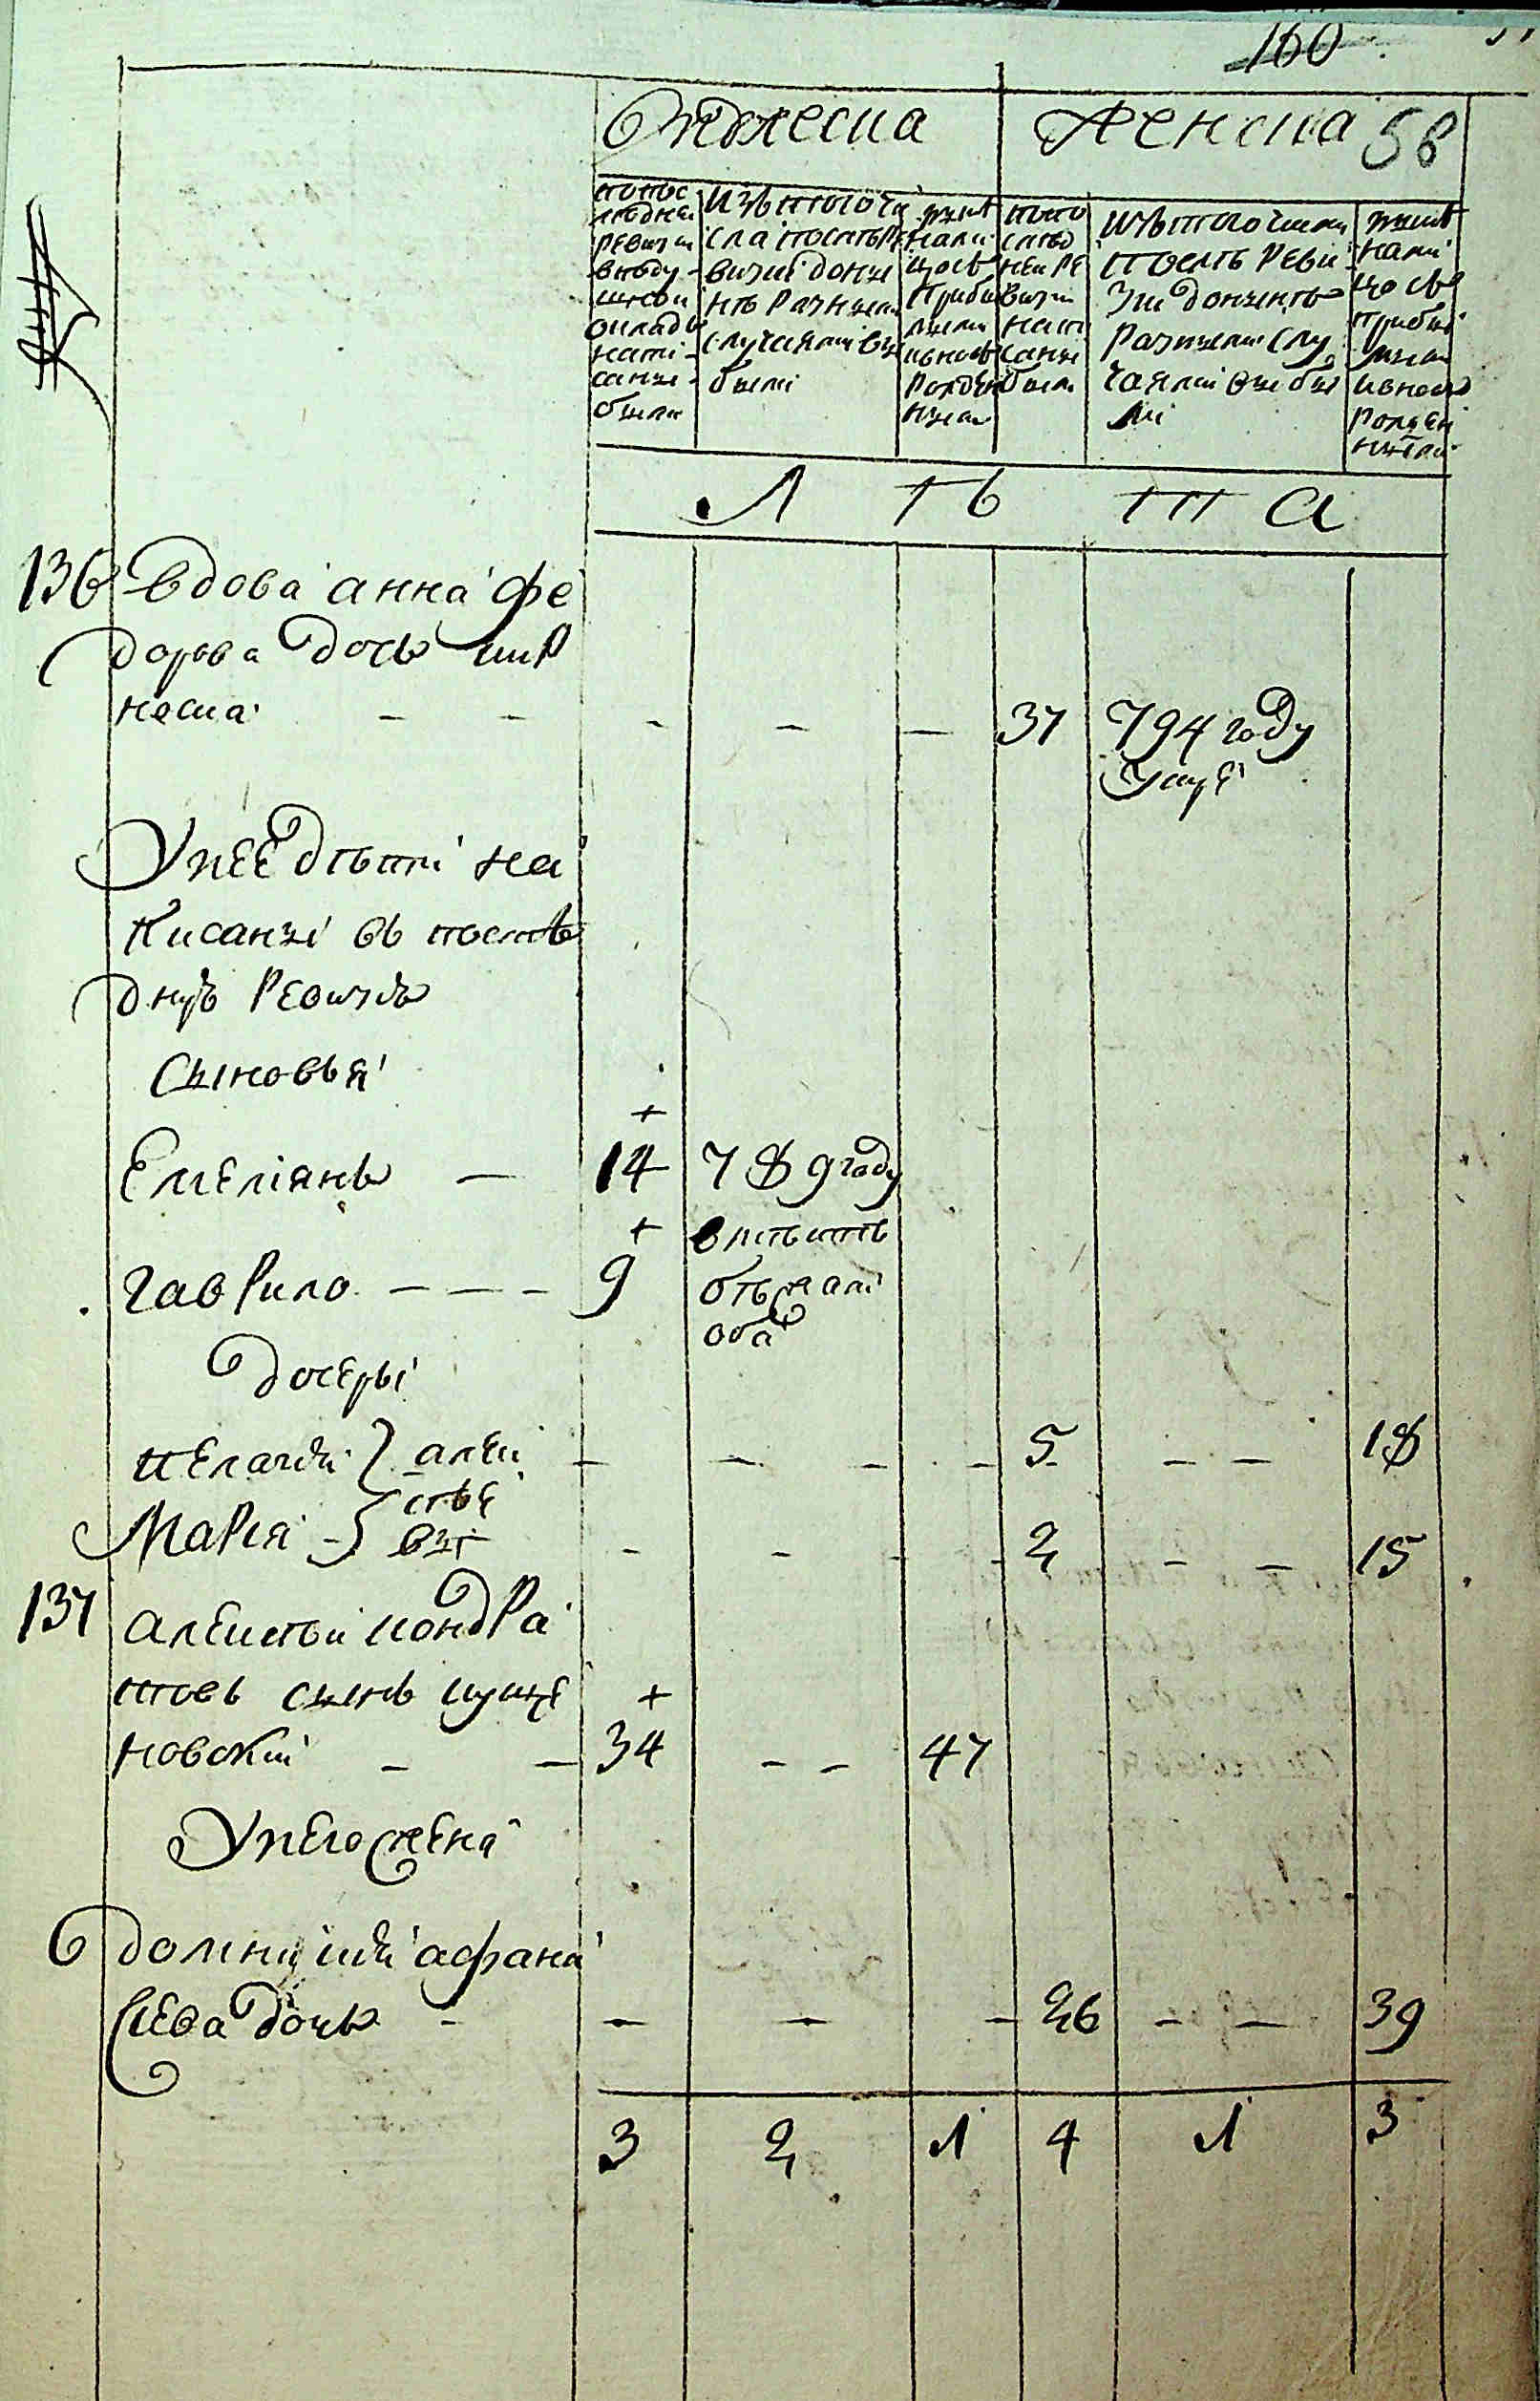 160
Мужеска
Женска 58
попос
ледней
ревизии
в поду
шной
окладъ
напи
саны
были
изътого чи
сла послъ ре
визии доны
нъ разными
случаями вы
были
ныне
нали
цо съ
прибы
лыми
ивновь
рожден
ными
попо
слъд
ней ре
визии
напи
саны
были
изътого числа
послъ реви
зии донынъ
разными слу
чаями выбы
ли
ныне
нали
цо съ
прибы
лыми
ивновь
рожден
ными
Л ѣ т а
136 вдова анна фе
дорова дочь
37 794 году
умре
У нее дѣти на
писаныи въ послѣ
днуъ ревизiю
Сыновья
+
Емелiянъ — 14 789 году
+
в лѣтѣ
Гаврило — — — 9
отъ
оба
дочери
пелагiи } алекс 5 — — 18
ѣе
Марiя } вы 2 — — 15
137 алексѣи кондра
товъ сынъ куще
+
новский — — 34 — — 47
У него жена
домникiи афана
сiева дочь — — — — 26 — — 39
3 2 1 4 1 3